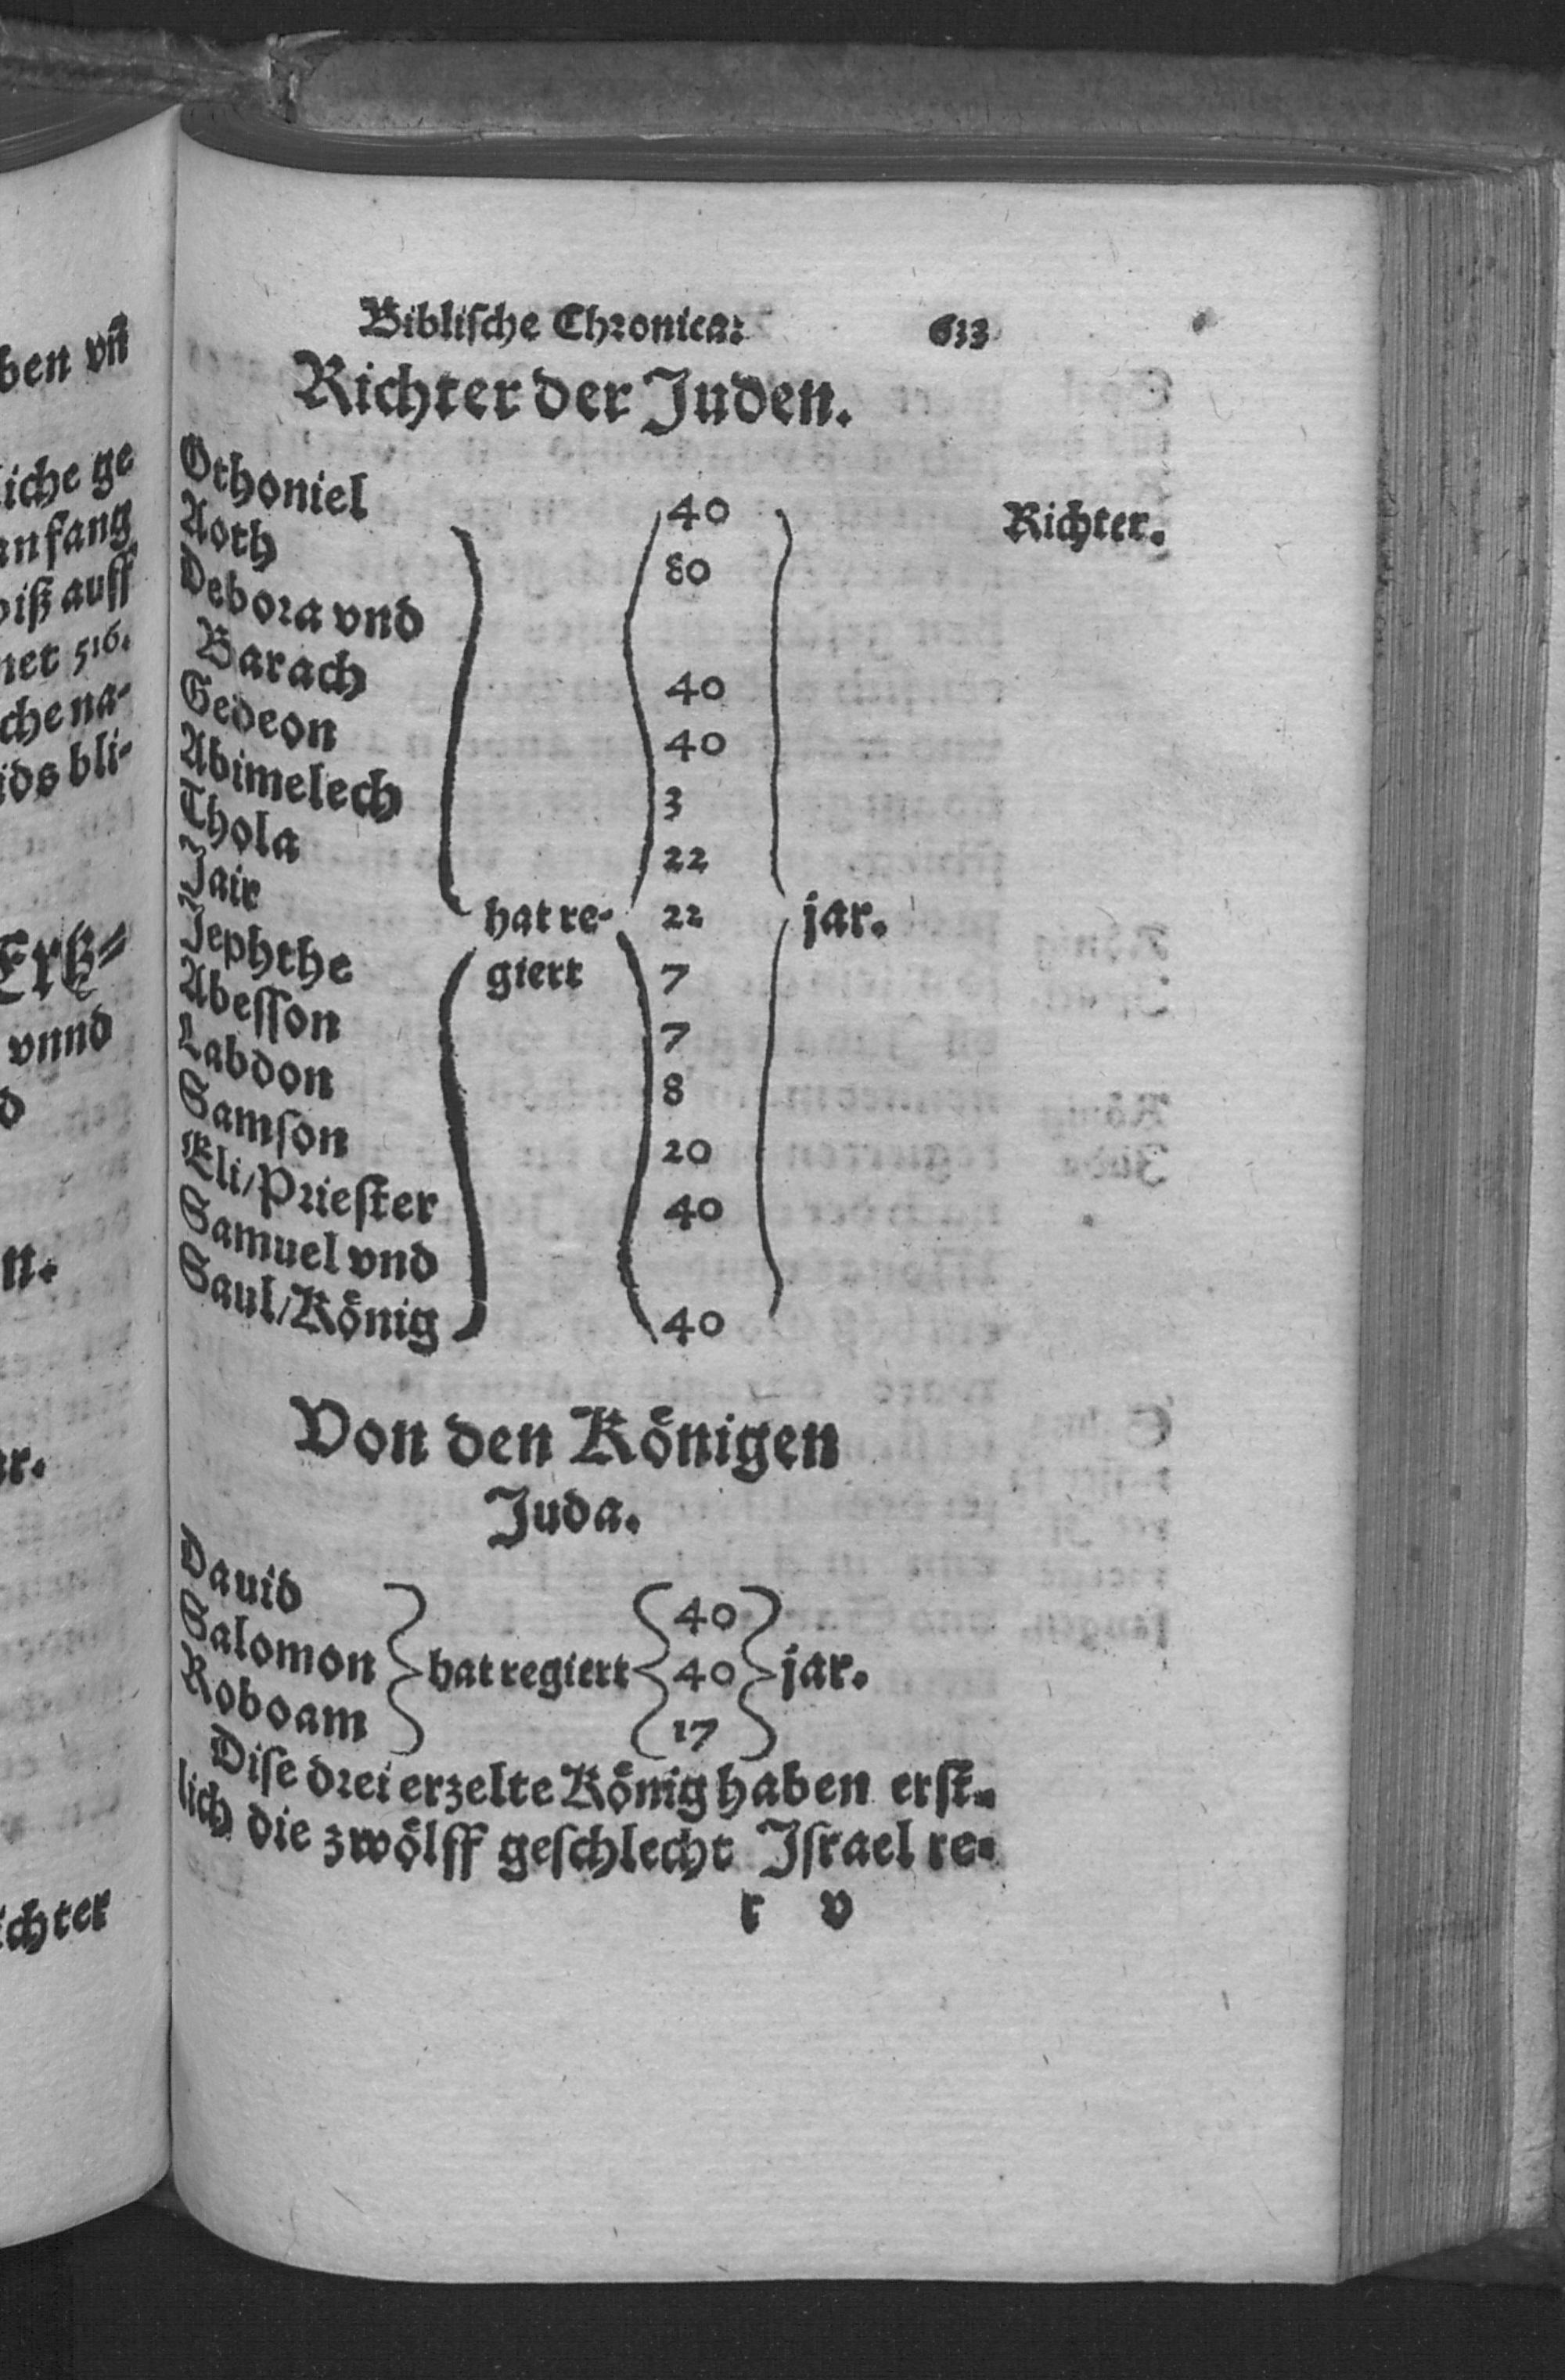 ben vñ
liche ge
anfang
biß auff
net 516.
che na-
ids bli-
Ertz=
vnnd
d
n.
ar.
ichter
Biblische Chronica: 633
Richter der Juden.
Othoniel 40 Richter.
Aoth 80
Debora vnd
Barach 40
Gedeon 40
Abimelech 3
Thola 22
Jair hat re- 22 jar.
Jephthe giert 7
Abesson 7
Labdon 8
Samson 20
Eli/Priester 40
Samuel vnd
Saul/König 40
Von den Königen
Juda.
Dauid 40
Salomon hat regiert 40 jar.
Roboam 17
Dise drei erzelte König haben erst-
lich die zwölff geschlecht Israel re-
r v